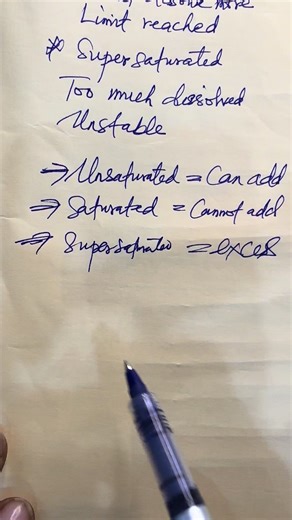 more
Limit reached
* Supersaturated
Too much dissolved
Unstable
→ Unsaturated = Can add
→ Saturated = Cannot add
→ Supersaturated = exces